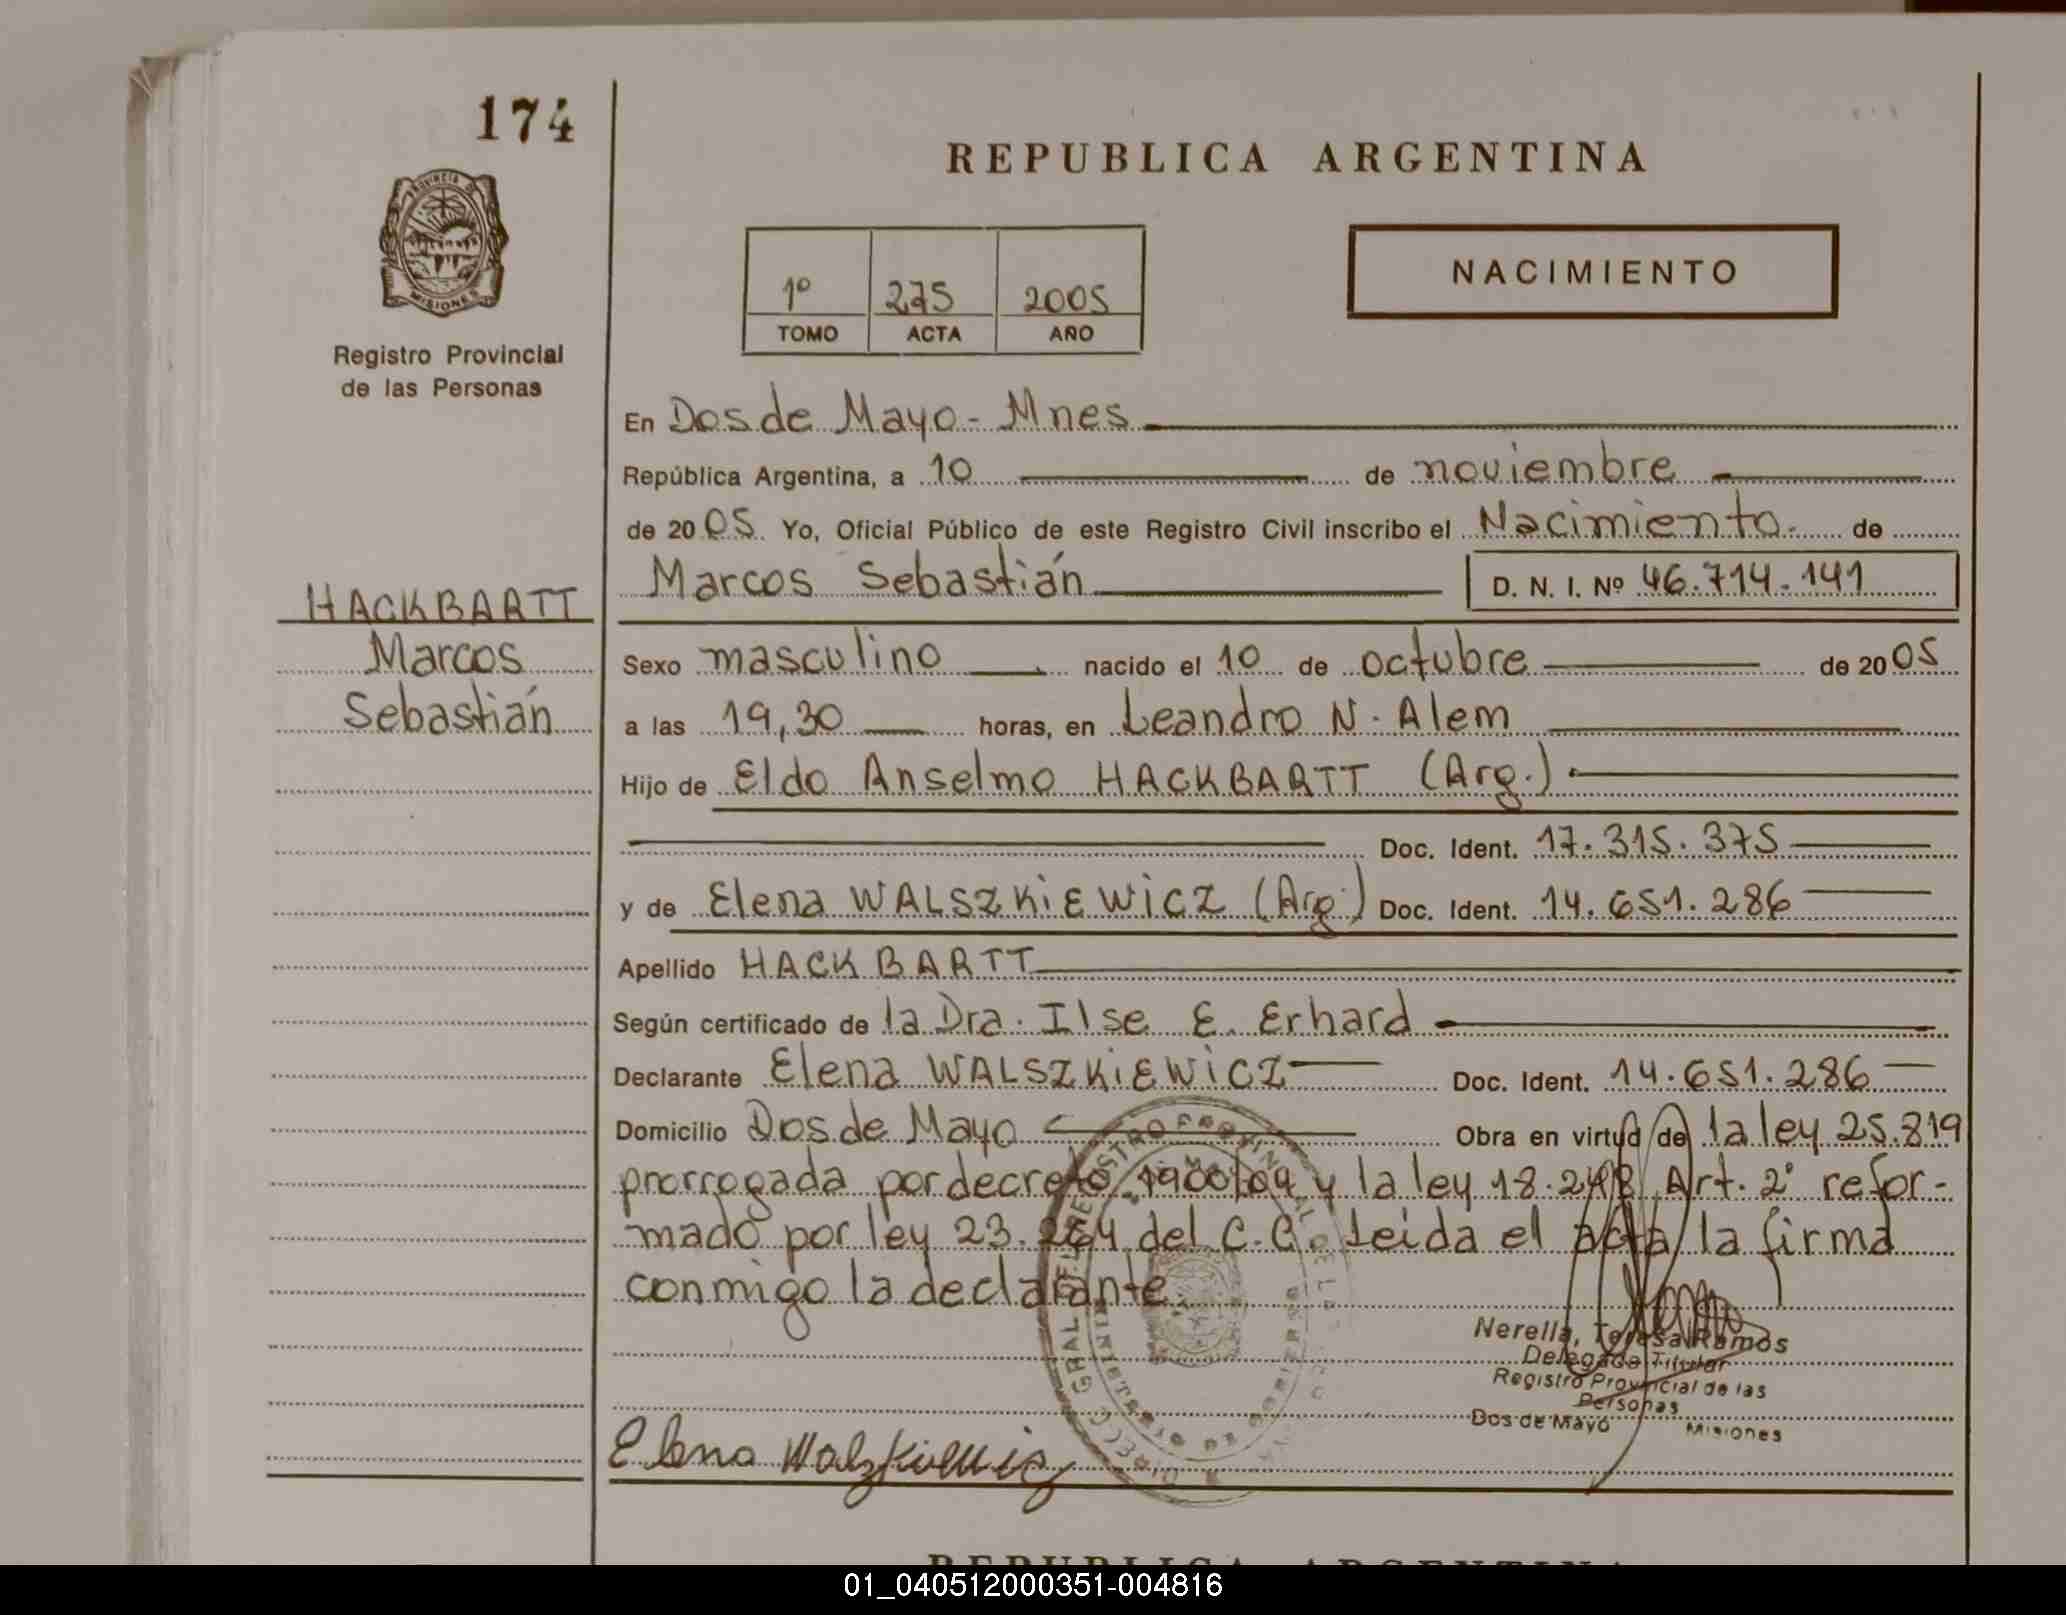 174
REPUBLICA ARGENTINA
PROVINCIA DE
MISIONES
Registro Provincial
de las Personas
1º 275 2005
TOMO ACTA AÑO
NACIMIENTO
En Dos de Mayo - Mnes
República Argentina, a 10 de noviembre
de 2005 Yo, Oficial Público de este Registro Civil inscribo el Nacimiento. de
Marcos Sebastián D. N. I. Nº 46.714.141
HACKBARTT
Marcos
Sebastián
Sexo masculino nacido el 10 de octubre de 2005
a las 19,30 horas, en Leandro N. Alem
Hijo de Eldo Anselmo HACKBARTT (Arg.)
Doc. Ident. 17.315.375
y de Elena WALSZKiEWiCZ (Arg.) Doc. Ident. 14.651.286
Apellido HACKBARTT
Según certificado de la Dra. Ilse E. Erhard
Declarante Elena WALSZKiEWiCZ Doc. Ident. 14.651.286
Domicilio Dos de Mayo Obra en virtud de la ley 25.819
prorrogada por decreto 1900/04 y la ley 18.248 Art. 2º refor-
mado por ley 23.264 del C.C. Leida el acta la firma
conmigo la declarante.
Nerella, Teresa Ramos
Delegada Titular
Registro Provincial de las
Personas
Dos de Mayo Misiones
REPUBLICA ARGENTINA
01_040512000351-004816